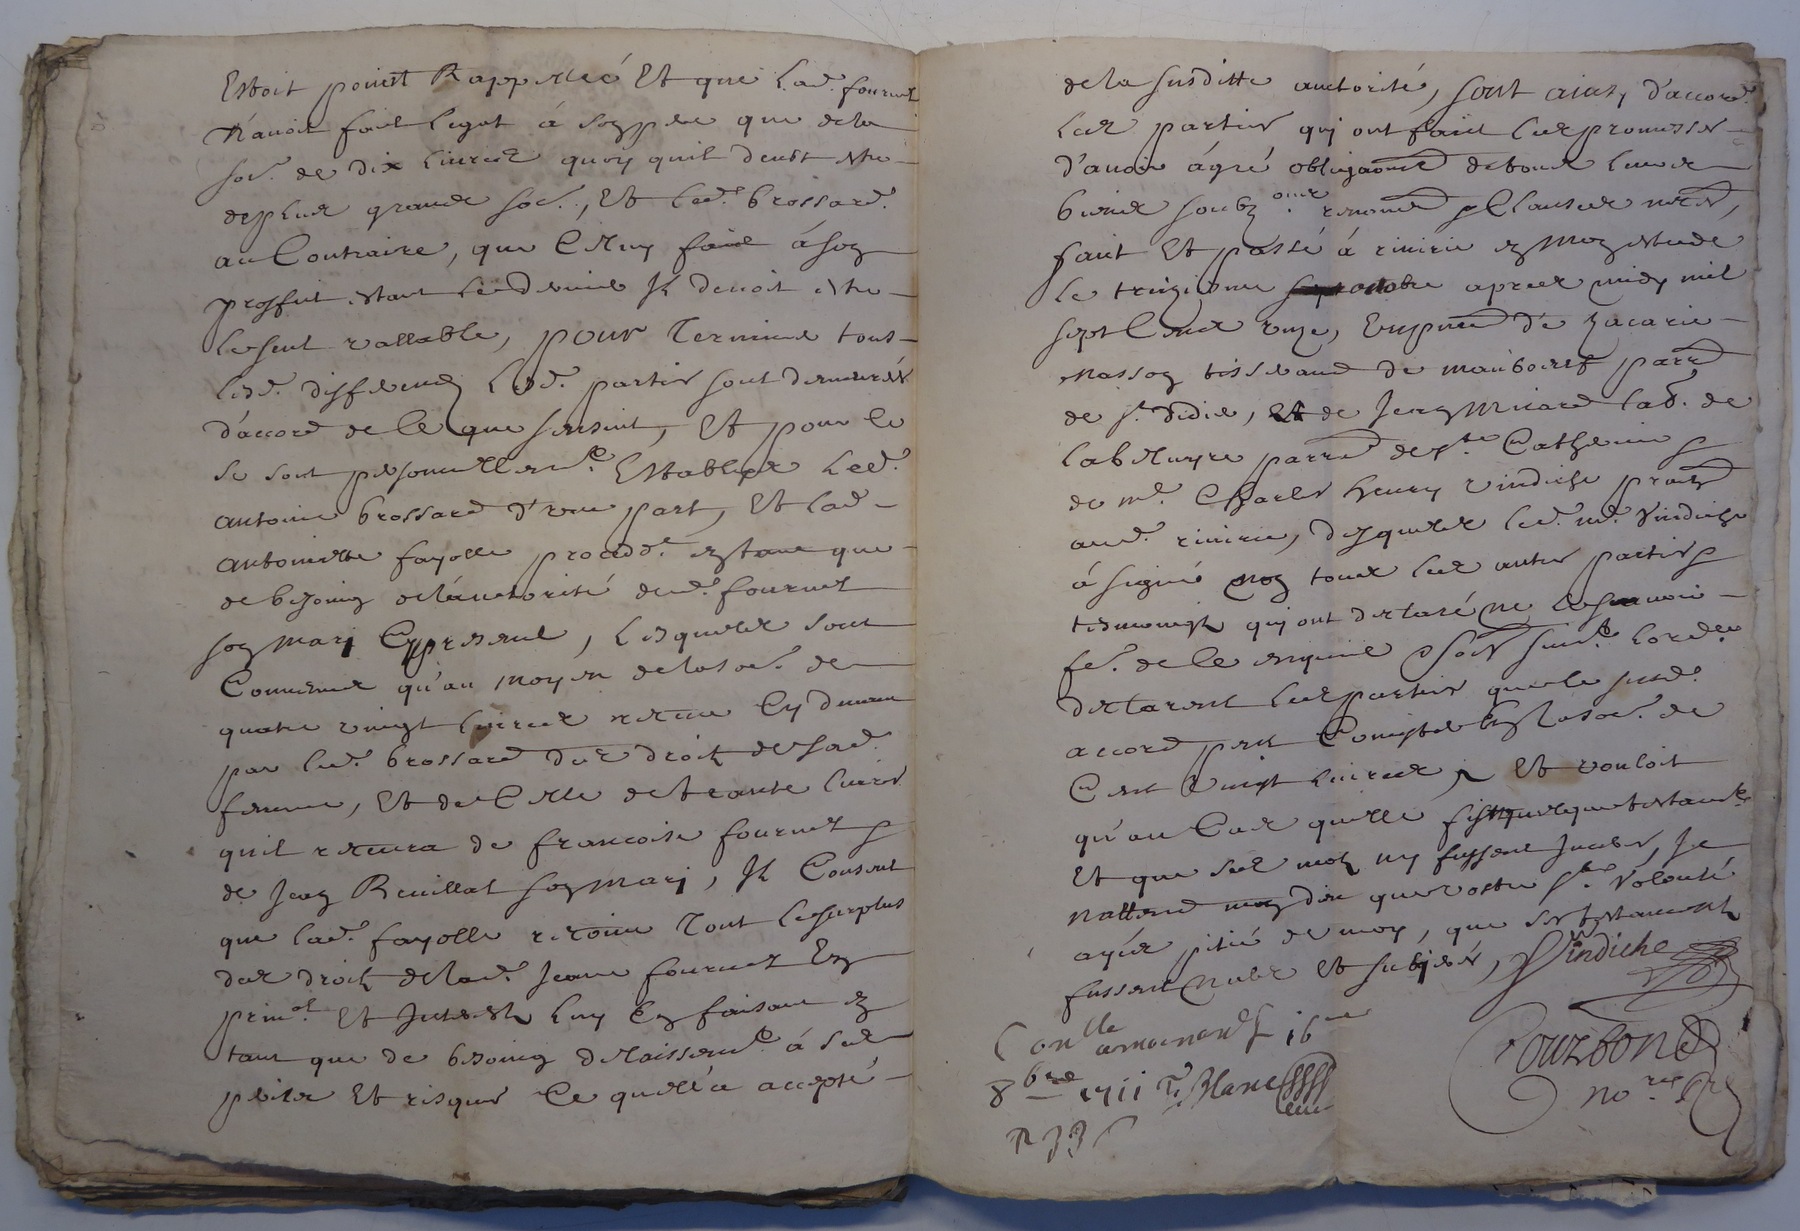 Estoit point Rappellée Et que lad. fournel
N'avoit fait legat á son pere que de la
so. de dix livres quoy quil deubt estre
de plus grande so., Et led. brossard
au Contraire, que Celluy fait á son
proffit estant le dernier Il devoit estre
le seul vallable, pour Terminer tous
lesd. differends lesd. parties sont demeurés
d'accord de Ce que sensuit, Et pour Ce
se sont personnellem.t Establies led.
antoine brossard d'une part, Et lad.
antoinette fayolle proced.t en tant que
de besoing de l'auctorité dud. fournel
son mary Cy present, lesquelles sont
Convenues qu'au moyen de la so. de
quatre vingt livres receue Cy devant
par led. brossard des droits de sad.
femme, Et de Celle de trante livres
quil recevra de francoise fournel
de Jean Revillat son mary, Il Consent
que lad. fayolle retire Tout le surplus
des droits de lad. Jeane fournel En
prin.al Et Interests luy En faisant en
tant que de besoing delaissem.t á ses
perils Et risques Ce quelle a accepté
de la susditte auctorité, sont ainsy d'accord
les parties qui ont fait les promesses
d'avoir ágré obligaōns de tous leurs
biens soubz renonceōns Clauses necēs,
fait Et passé á rivirie en mon estude
le treizieme octobre apres midy mil
sept Cent unze, En pnce de Zacarie
Masson tisserand de mauboeuf parr.
de s.t didier, Et de Jean Micard lab. de
la bruyre parr. de s.te Catherine
de m.e Charles henry vindiche prat.
aud. rivirie, desquels led. m.e Vindiche
á signé non tous les autres parties
tesmoings qui ont declaré ne le scavoir
fe. de Ce enquis suiv.t l'ord.ce
declarent les parties que le susd.
accord peut Consister En la so. de
Cent vingt livres, Et vouloit
qu'au Cas quelle fist quelque testament
Et que ses mots ny fussent Inserés, Je
Nattend dire que vostre s.te Volonté
ayés pitié de moy, que ses testaments
fussent nuls Et
Vindiche
Con.lle 16
8bre 1711 Blanc
Courbon
no.re